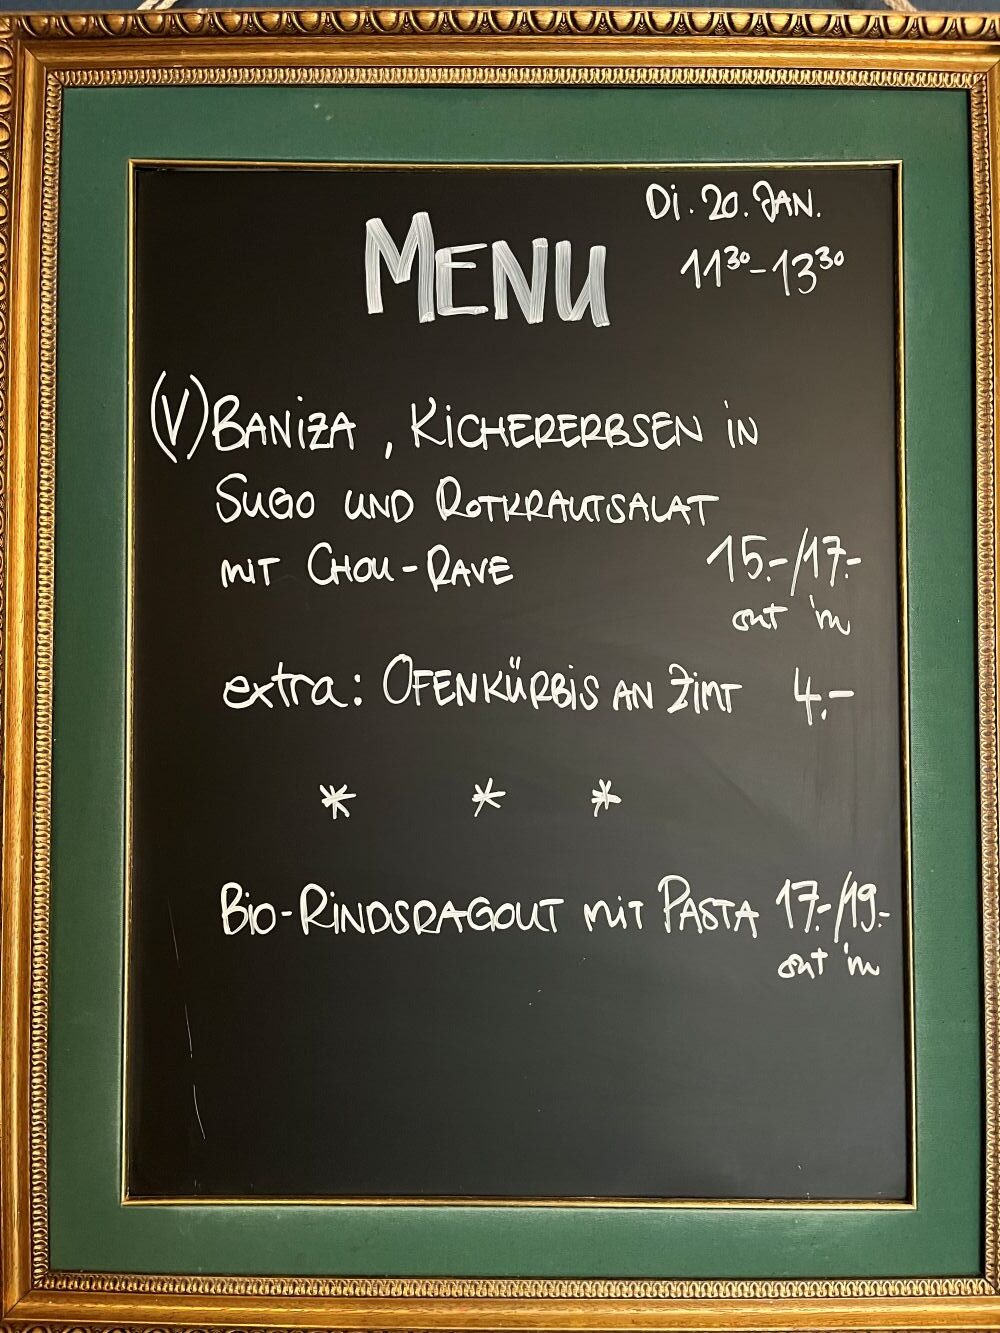 Di. 20. JAN.
MENU
11³⁰-13³⁰
(V) BANIZA, KICHERERBSEN IN
SUGO UND ROTKRAUTSALAT
MIT CHOU-RAVE 15.-/17.-
out in
extra: OFENKÜRBIS AN ZIMT 4.-
* * *
BIO-RINDSRAGOUT MIT PASTA 17.-/19.-
out in